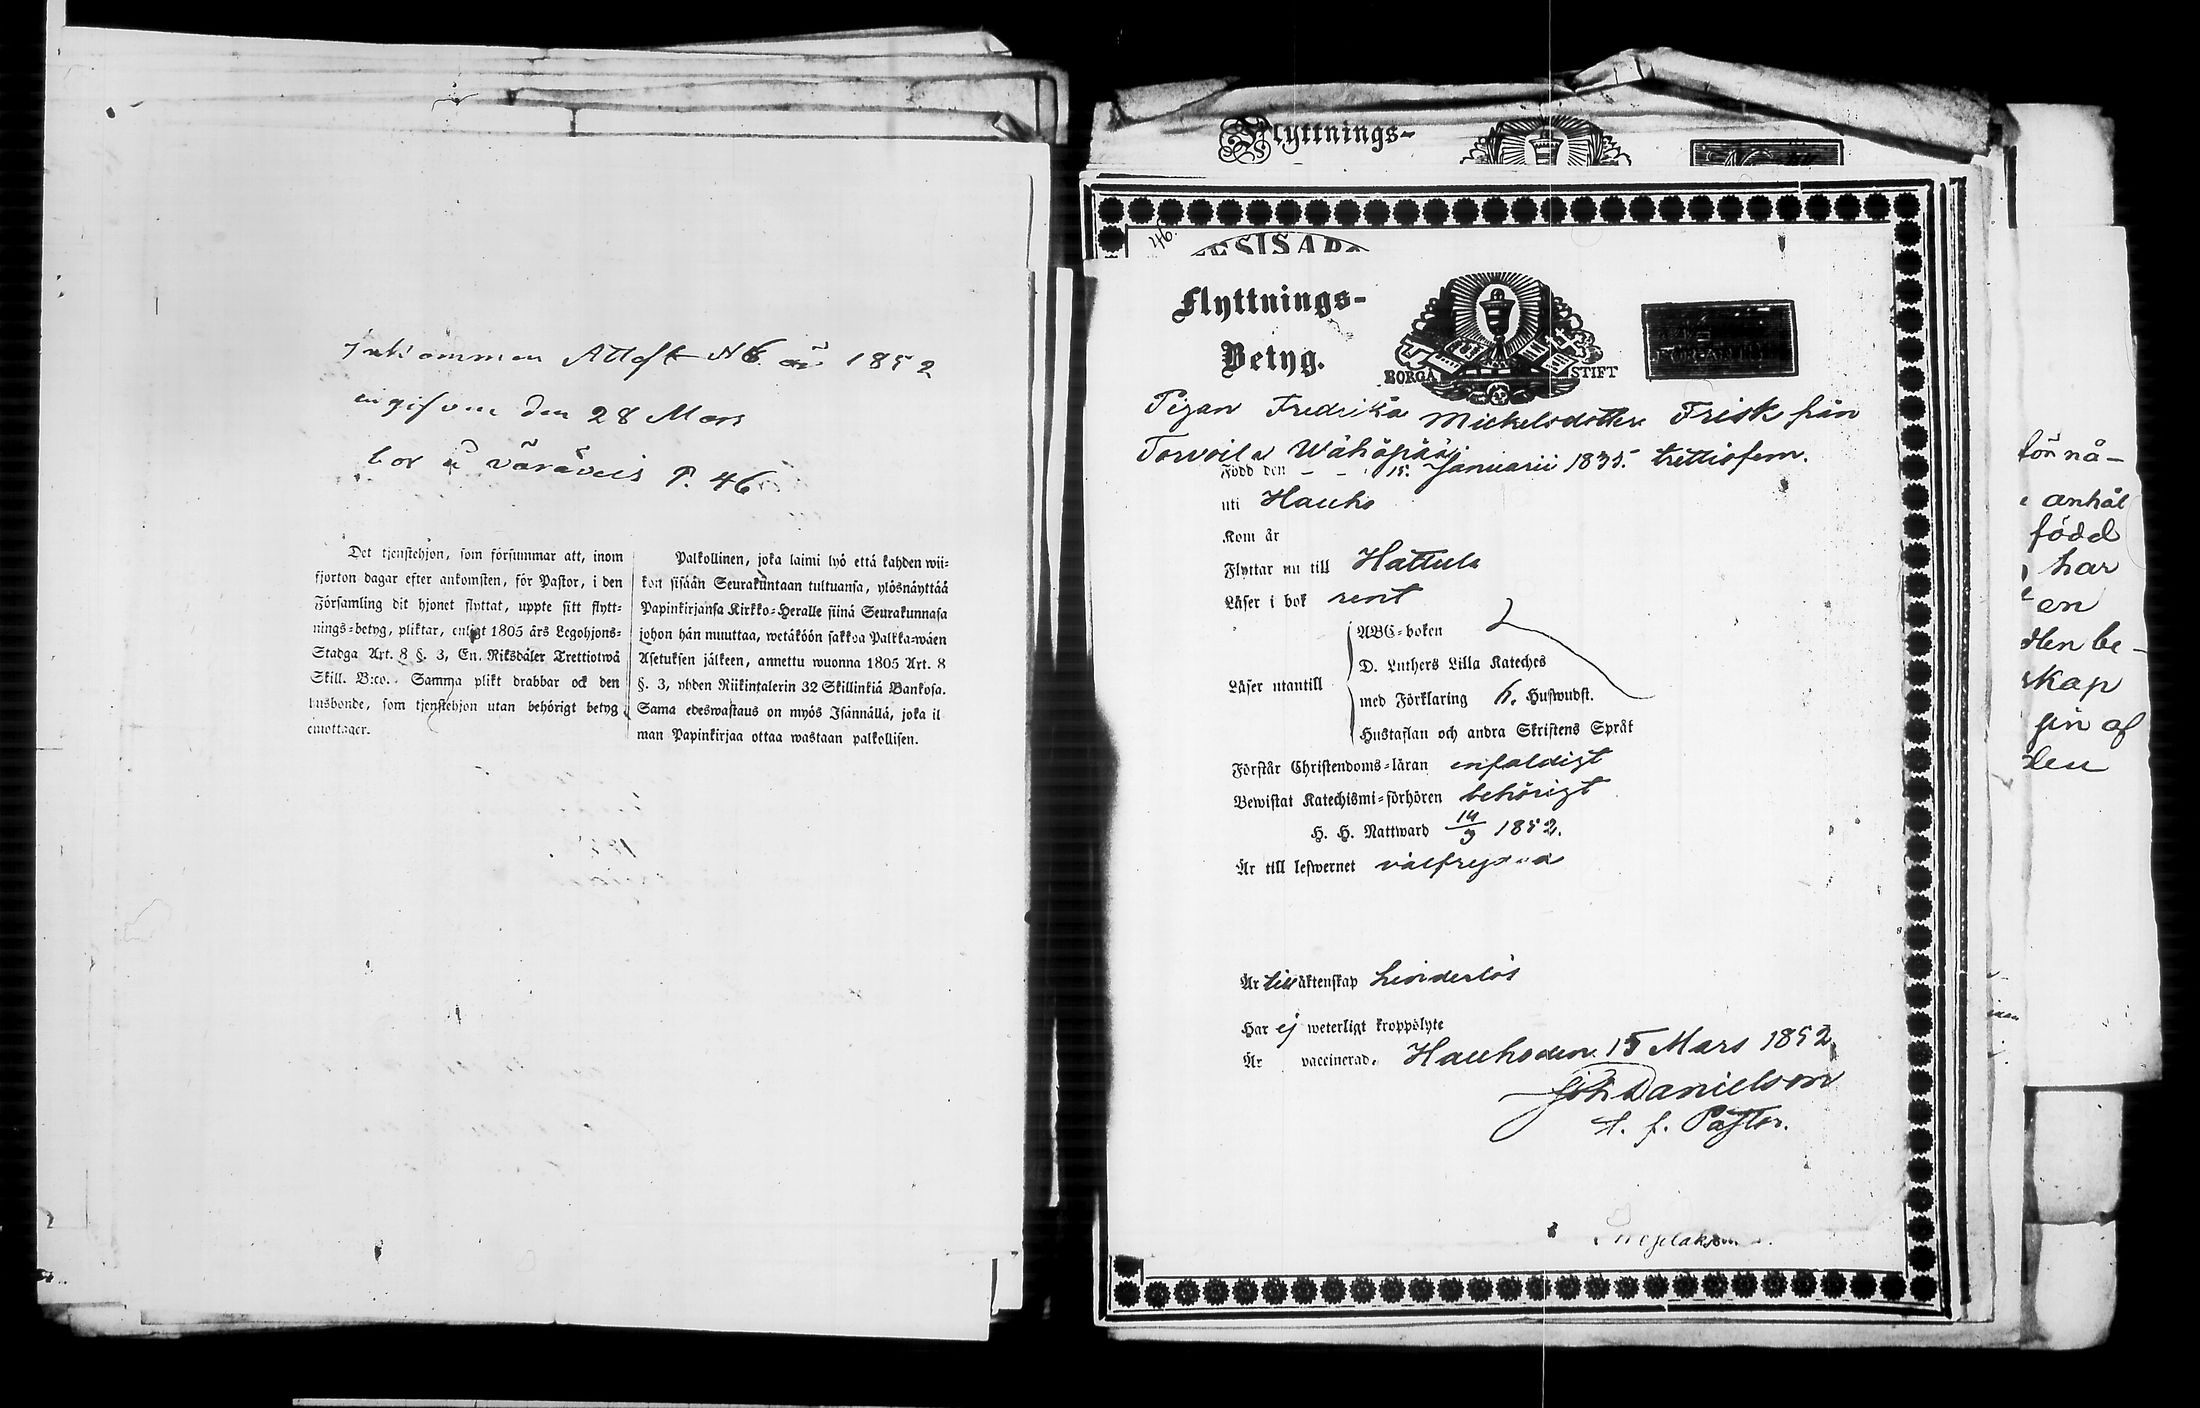 Inkommen Attest N 6. år 1852
ingifven den 28 Mars
bor i P. 46
Det tjenstehjon, som försummar att, inom
fjorton dagar efter ankomsten, för Pastor, i den
Församling dit hjonet flyttat, uppte sitt flytt-
nings-betyg, pliktar, enligt 1805 års Legohjons-
Stadga Art. 8 §. 3, En Riksdaler Trettiotwå
Skill. B:co. Samma plikt drabbar ock den
husbonde, som tjenstehjon utan behörigt betyg
emottager.
Palkollinen, joka laimi lyö että kahden wii-
kon sisään Seurakuntaan tultuansa, ylösnäyttää
Papinkirjansa Kirkko-Heralle siinä Seurakunnasa
johon hän muuttaa, wetäköön sakkoa Palkka-wäen
Asetuksen jälkeen, annettu wuonna 1805 Art. 8
§. 3, yhden Riikintalerin 32 Skillinkiä Bankosa.
Sama edeswastaus on myös Isännällä, joka il
man Papinkirjaa ottaa wastaan palkollisen.
Flyttnings-
46.
Flyttnings-
Betyg.
BORGÅ STIFT
Pigan Fredrika Mickelsdotter Frisk från
Torvoila Wähäpää
Född den - - 15. Januarii 1835. trettiofem.
uti Hauho
Kom år
Flyttar nu till Hattula
Läser i bok rent
Läser utantill
ABC-boken
D. Luthers Lilla Kateches
med Förklaring h. Huswudst.
Hustaflan och andra Skriftens Språk
Förstår Christendoms-läran enfaldigt
Bewistat Katechismi-förhören behörigt
H. H. Nattward 14/3 1852.
Är till lefwernet välfrejdad
Är till äktenskap hinderlös
Har ej weterligt kroppslyte
Är vaccinerad. Hauho den 15 Mars 1852
Joh Danielson
t. f. Pastor.
för nå-
anhål
född
har
en
den be-
skap
gin af
den